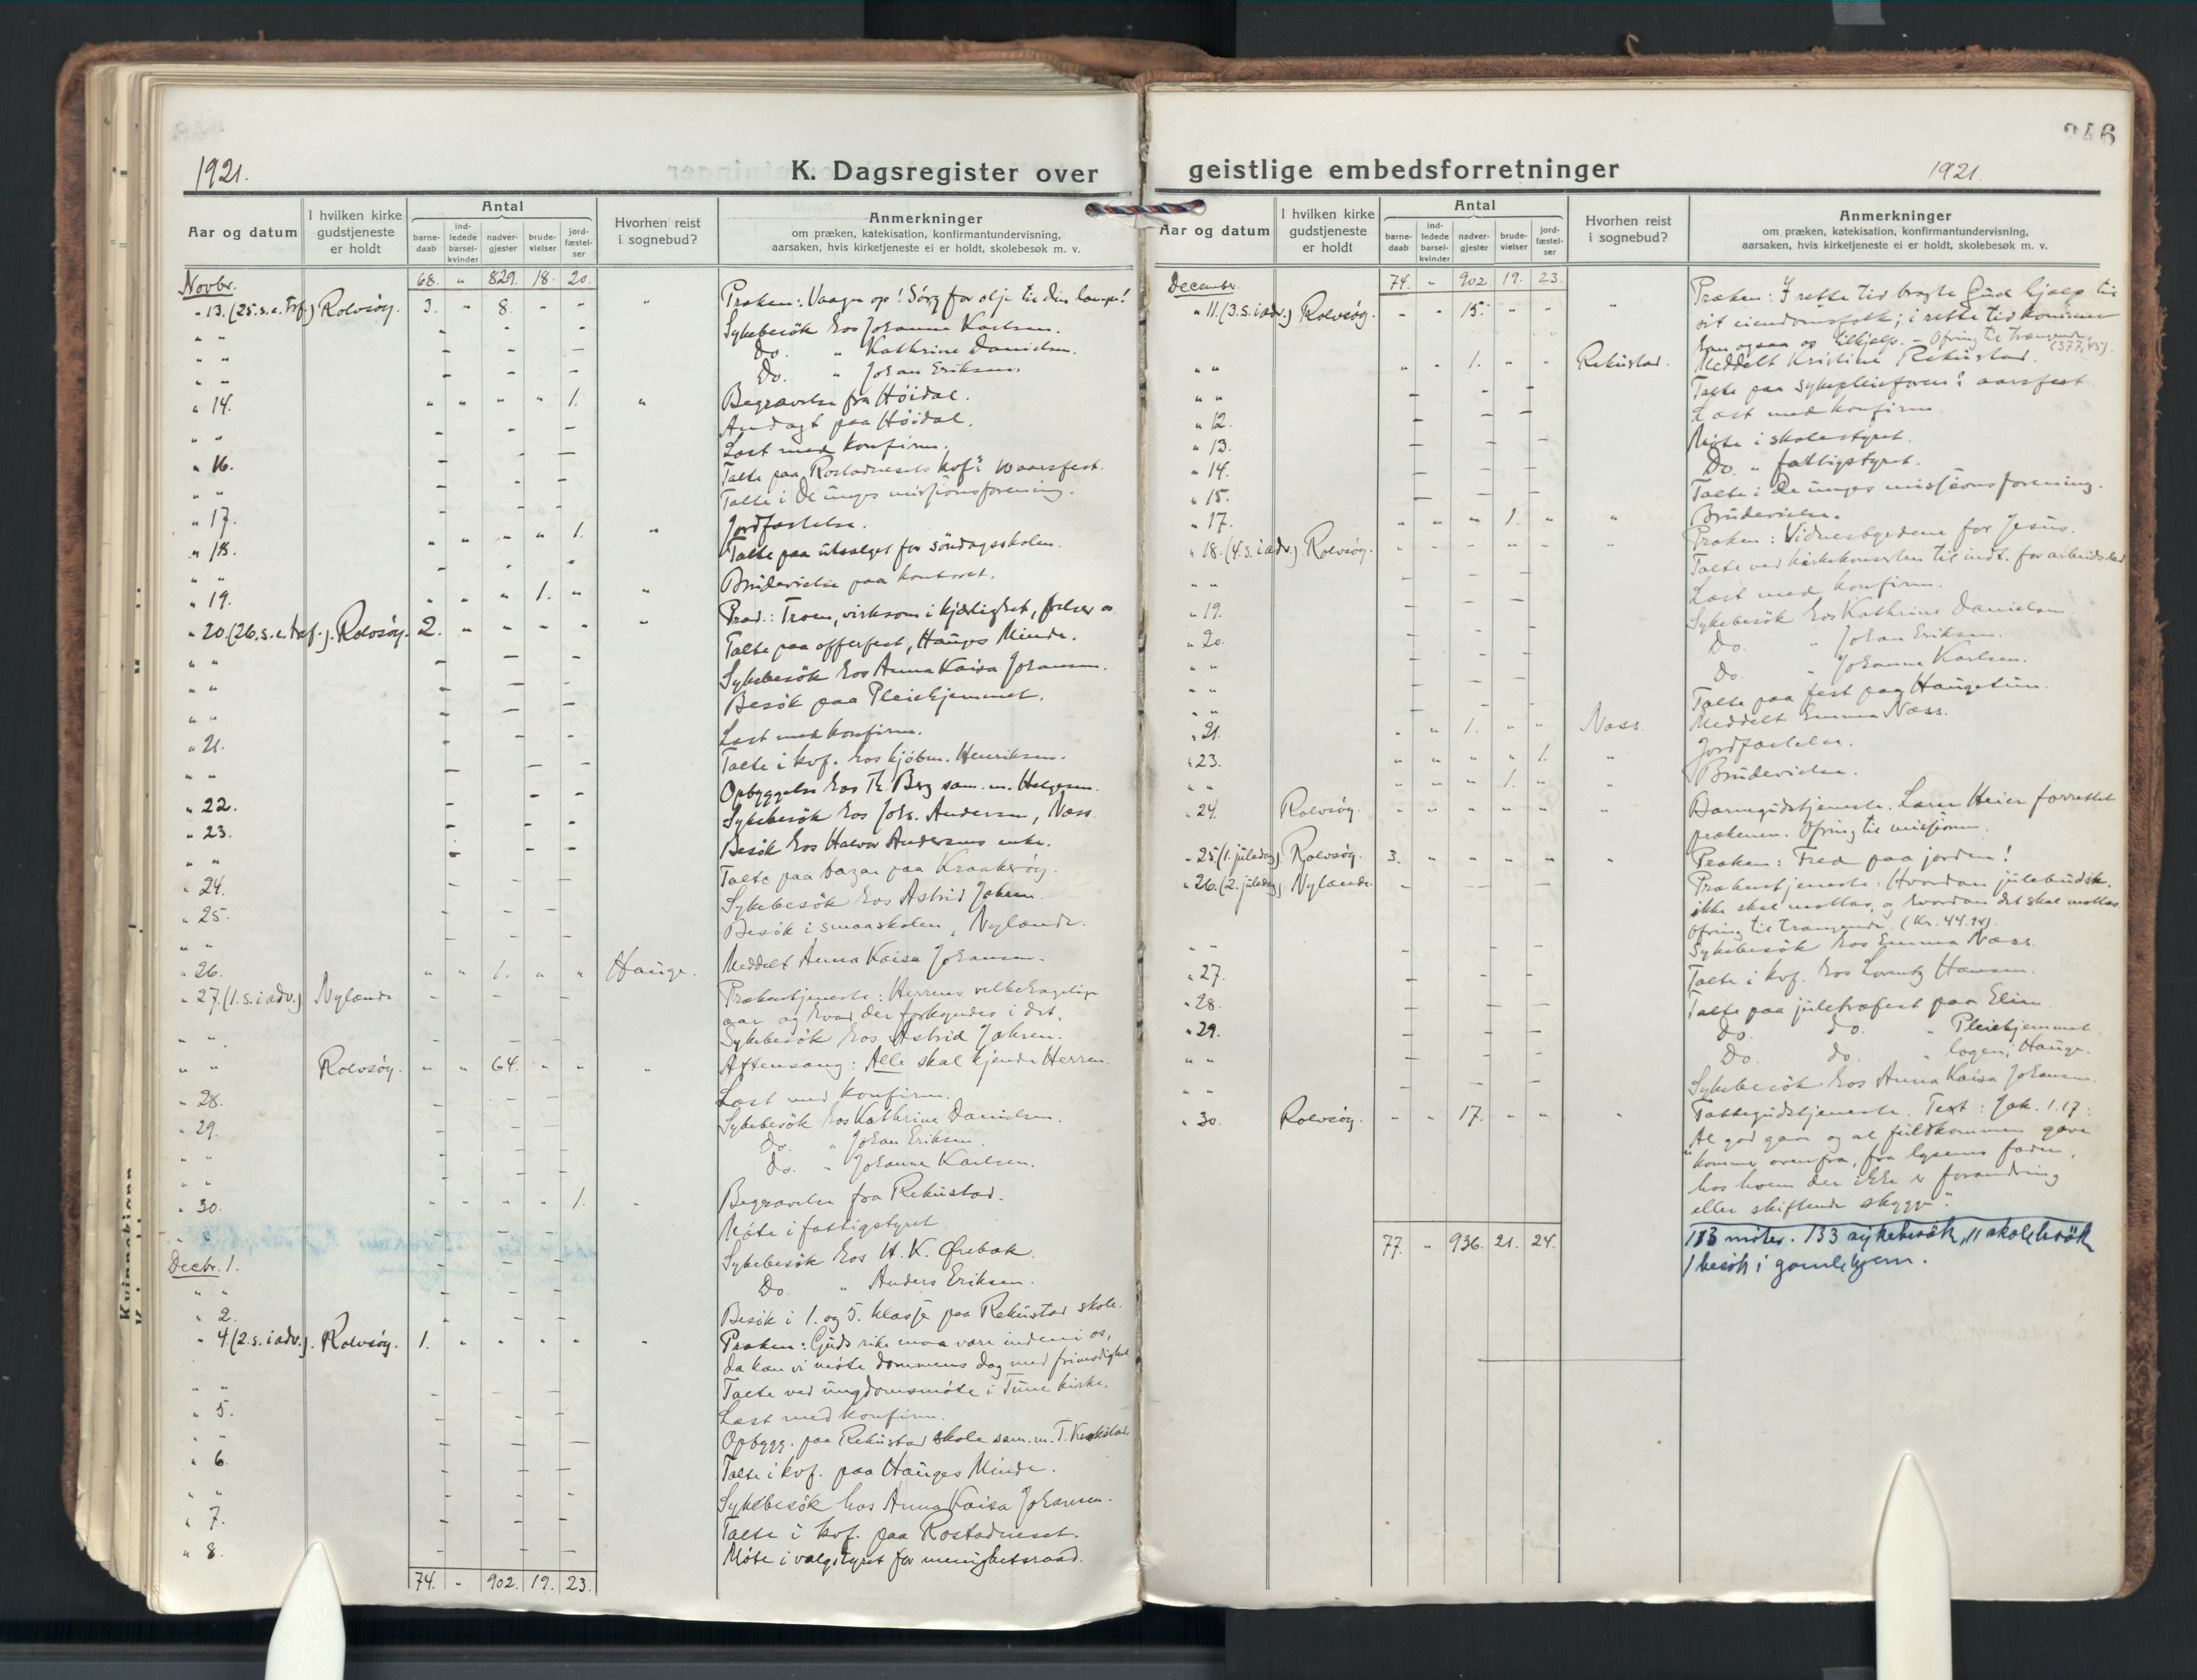 246
1921.
K. Dagsregister over
Aar og datum
I hvilken kirke gudstjeneste er holdt
Antal
barne-daab
ind-ledede barsel-kvinder
nadver-gjester
brude-vielser
jord-fæstel-ser
Hvorhen reist i sognebud?
Anmerkninger
om præken, katekisation, konfirmantundervisning,
aarsaken, hvis kirketjeneste ei er holdt, skolebesøk m. v.
Novbr. 68. " 829. 18. 20.
" 13. (25. s. e. trf.) Rolvsøy. 3. " 8. - - " Præken: Vaagn op! Sørg for olje til din lampe!
" " Sykebesök hos Johanne Karlsen.
" " Do. " Kathrine Danielsen.
" " Do. " Johan Eriksen.
" 14. " " " " 1. " Begravelse fra Høidal.
" " Andagt paa Høidal.
Læst med konfirm.
" 16. Talte paa Rostadnesets kvf.s 10 aarsfest.
" " Talte i De unges missionsforening.
" 17. " " " " 1. " Jordfæstelse.
" 18. Talte paa utsalget for söndagsskolen.
" "
" 19. " " " 1. " " Brudevielse paa kontoret.
" 20. (26. s. e. tref.). Rolvsøy. 2. " " " " " Præd.: Troen, virksom i kjærlighet, frelser os
" " Talte paa offerfest, Hauges Minde.
" " Sykebesök hos Anna Kaisa Johansen.
" " Besök paa Pleiehjemmet.
" 21. Læst med konfirm.
" " Talte i kvf. hos kjöbm. Henriksen.
Opbyggelse hos Th. Berg sam. m. Helgesen.
" 22. Sykebesök hos Johs. Andersen, Næss.
" 23. Besök hos Halvor Andersens enke.
" " Talte paa bazar paa Kraakerøy.
" 24. Sykebesök hos Astrid Jahren.
" 25. Besök i smaaskolen, Nylænde.
" "
" 26. " " 1. " " Hauge. Meddelt Anna Kaisa Johansen.
" 27. (1. s. i adv.) Nylænde Prækentjeneste: Herrens velbehagelige
aar og hvad der forkyndes i det.
" " Sykebesök hos Astrid Jahren.
" " Rolvsøy. " " 64. " " " Aftensang: Alle skal kjende Herren.
" 28. Læst med konfirm.
" 29. Sykebesök hos Kathrine Danielsen.
" " Do. " Johan Eriksen.
" " Do. " Johanne Karlsen.
" 30. " " " " 1. " Begravelse fra Rekustad.
" " Möte i fattigstyret
Decbr. 1. Sykebesök hos H. K. Ørebak.
" " Do. " Anders Eriksen.
" 2. Besök i 1. og 5. klasse paa Rekustad skole.
" 4 (2. s. i adv.). Rolvsøy. 1. " " " " " Præken: Guds rike maa være indeni os,
da kan vi möte dommens dag med frimodighet
" " Talte ved ungdomsmöte i Tune kirke.
" 5. Læst med konfirm.
" " Opbygg. paa Rekustad skole sam. m. T.
" 6. Talte i kvf. paa Hauges Minde.
" " Sykebesök hos Anna Kaisa Johansen.
" 7. Talte i kvf. paa Rostadneset.
" 8. Möte i valgstyret for menighetsraad.
74. " 902. 19. 23.
geistlige embedsforretninger
1921.
Aar og datum
I hvilken kirke gudstjeneste er holdt
Antal
barne-daab
ind-ledede barsel-kvinder
nadver-gjester
brude-vielser
jord-fæstel-ser
Hvorhen reist i sognebud?
Anmerkninger
om præken, katekisation, konfirmantundervisning,
aarsaken, hvis kirketjeneste ei er holdt, skolebesøk m. v.
December. 74. " 902. 19. 23.
" 11. (3. s. i adv.) Rolvsøy. - - 15. - - " Præken: I rette tid bragte Gud hjælp til
sit eiendomsfolk; i rette tid kommer
han ogsaa os til hjelp. - Ofring til trængende
(377,45).
" " " " 1. " " Rekustad. Meddelt Kristine Rekustad.
" " Talte paa sykepleiefören.s aarsfest
" 12. Læst med konfirm.
" 13. Möte i skolestyret.
" 14. Do. " fattigstyret.
" 15. Talte i De unges missionsforening.
" 17. " " " 1. " " Brudevielse.
" 18. (4. s. i adv.). Rolvsøy. " " " " " " Præken: Vidnesbyrdene for Jesus.
" " Talte ved kirkekonserten til indt. for arbeidsled
" 19. Læst med konfirm.
" 20. Sykebesök hos Kathrine Danielsen
" " Do. " Johan Eriksen.
" " Do. " Johanne Karlsen.
" " Talte paa fest paa Haugetun.
" 21. " " 1. " " Næss. Meddelt Emma Næss.
" 23. " " " " 1. " Jordfæstelse.
" " " " " 1. " " Brudevielse.
" 24. Rolvsøy. " " " " " " Barnegudstjeneste. Lærer Heier forrettet
prækenen. Ofring til missionen.
" 25 (1. juledag). Rolvsøy. 3. " " " " " Præken: Fred paa jorden!
" 26. (2. juledag) Nylænde. Prækentjeneste: Hvordan julebudsk.
ikke skal mottas, og hvordan det skal mottas
Ofring til trængende. (kr. 44.94).
" " Sykebesök hos Emma Næss.
" 27. Talte i kvf. hos Lorentz Hansen.
" 28. Talte paa juletræfest paa Elim.
" 29. Do. do. " Pleiehjemmet
" " Do. do. " logen, Hauge.
" " Sykebesök hos Anna Kaisa Johansen.
" 30. Rolvsøy. " " 17. " " " Takkegudstjeneste. Text: Jak. 1.17:
"Al god gave og al fuldkommen gave
kommer ovenfra, fra lysenes fader,
hos hvem der ikke er forandring
eller skiftende skygge".
77. " 936. 21. 24.
133 möter. 133 sykebesök, 11 skolebesök
1 besök i gamlehjem.